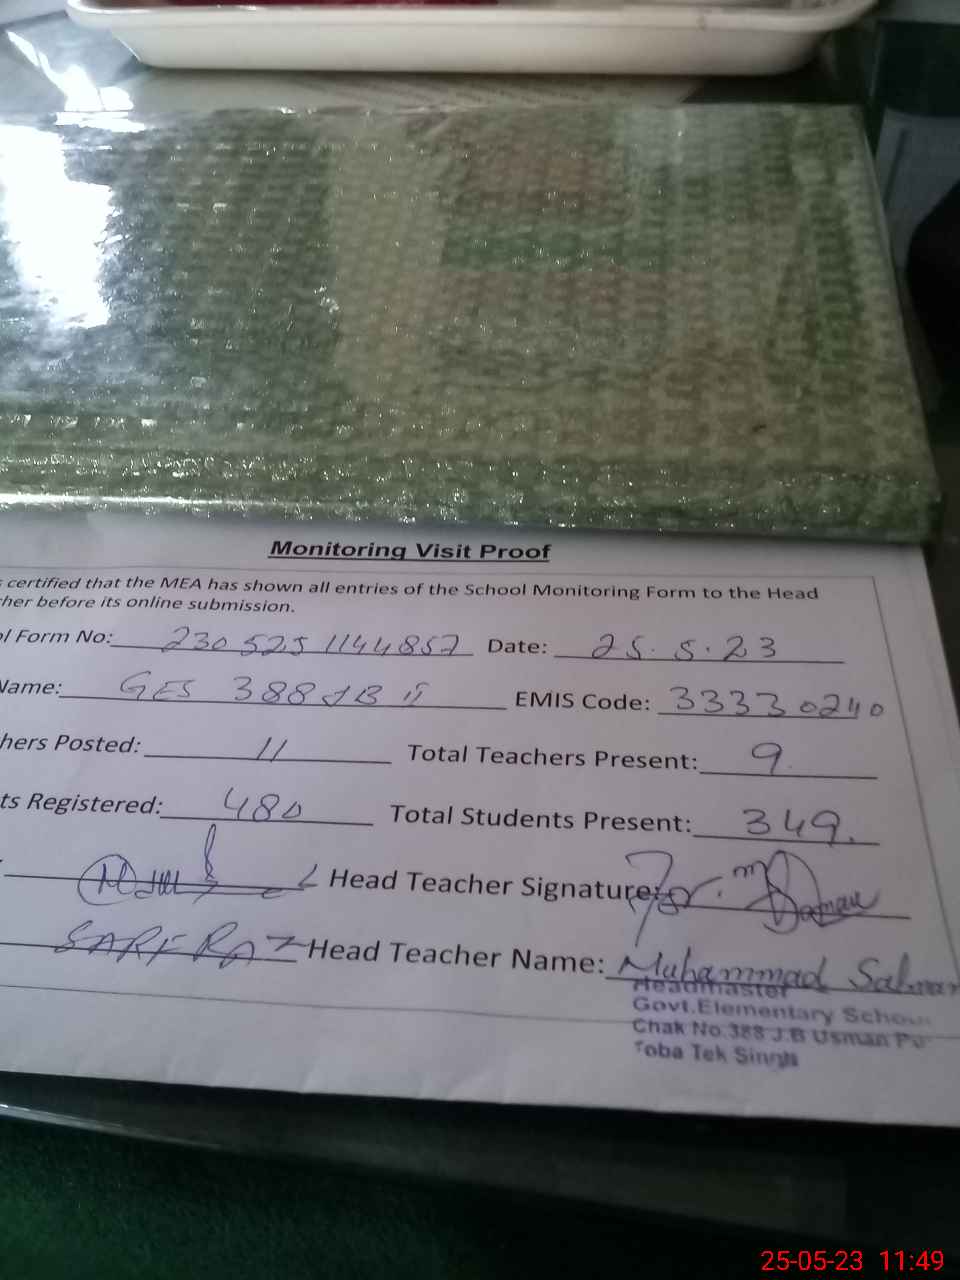 Monitoring Visit Proof
certified that the MEA has shown all entries of the School Monitoring Form to the Head
her before its online submission.
Form No: 2305251144857 Date: 25.5.23
Name: GES 388 JB II EMIS Code: 33330240
hers Posted: 11 Total Teachers Present: 9
ts Registered: 480 Total Students Present: 349.
Head Teacher Signature: For.
SARFRAZ Head Teacher Name: Muhammad Salman
Headmaster
Govt.Elementary School
Chak No.388 J.B Usman
Toba Tek Singh
25-05-23 11:49